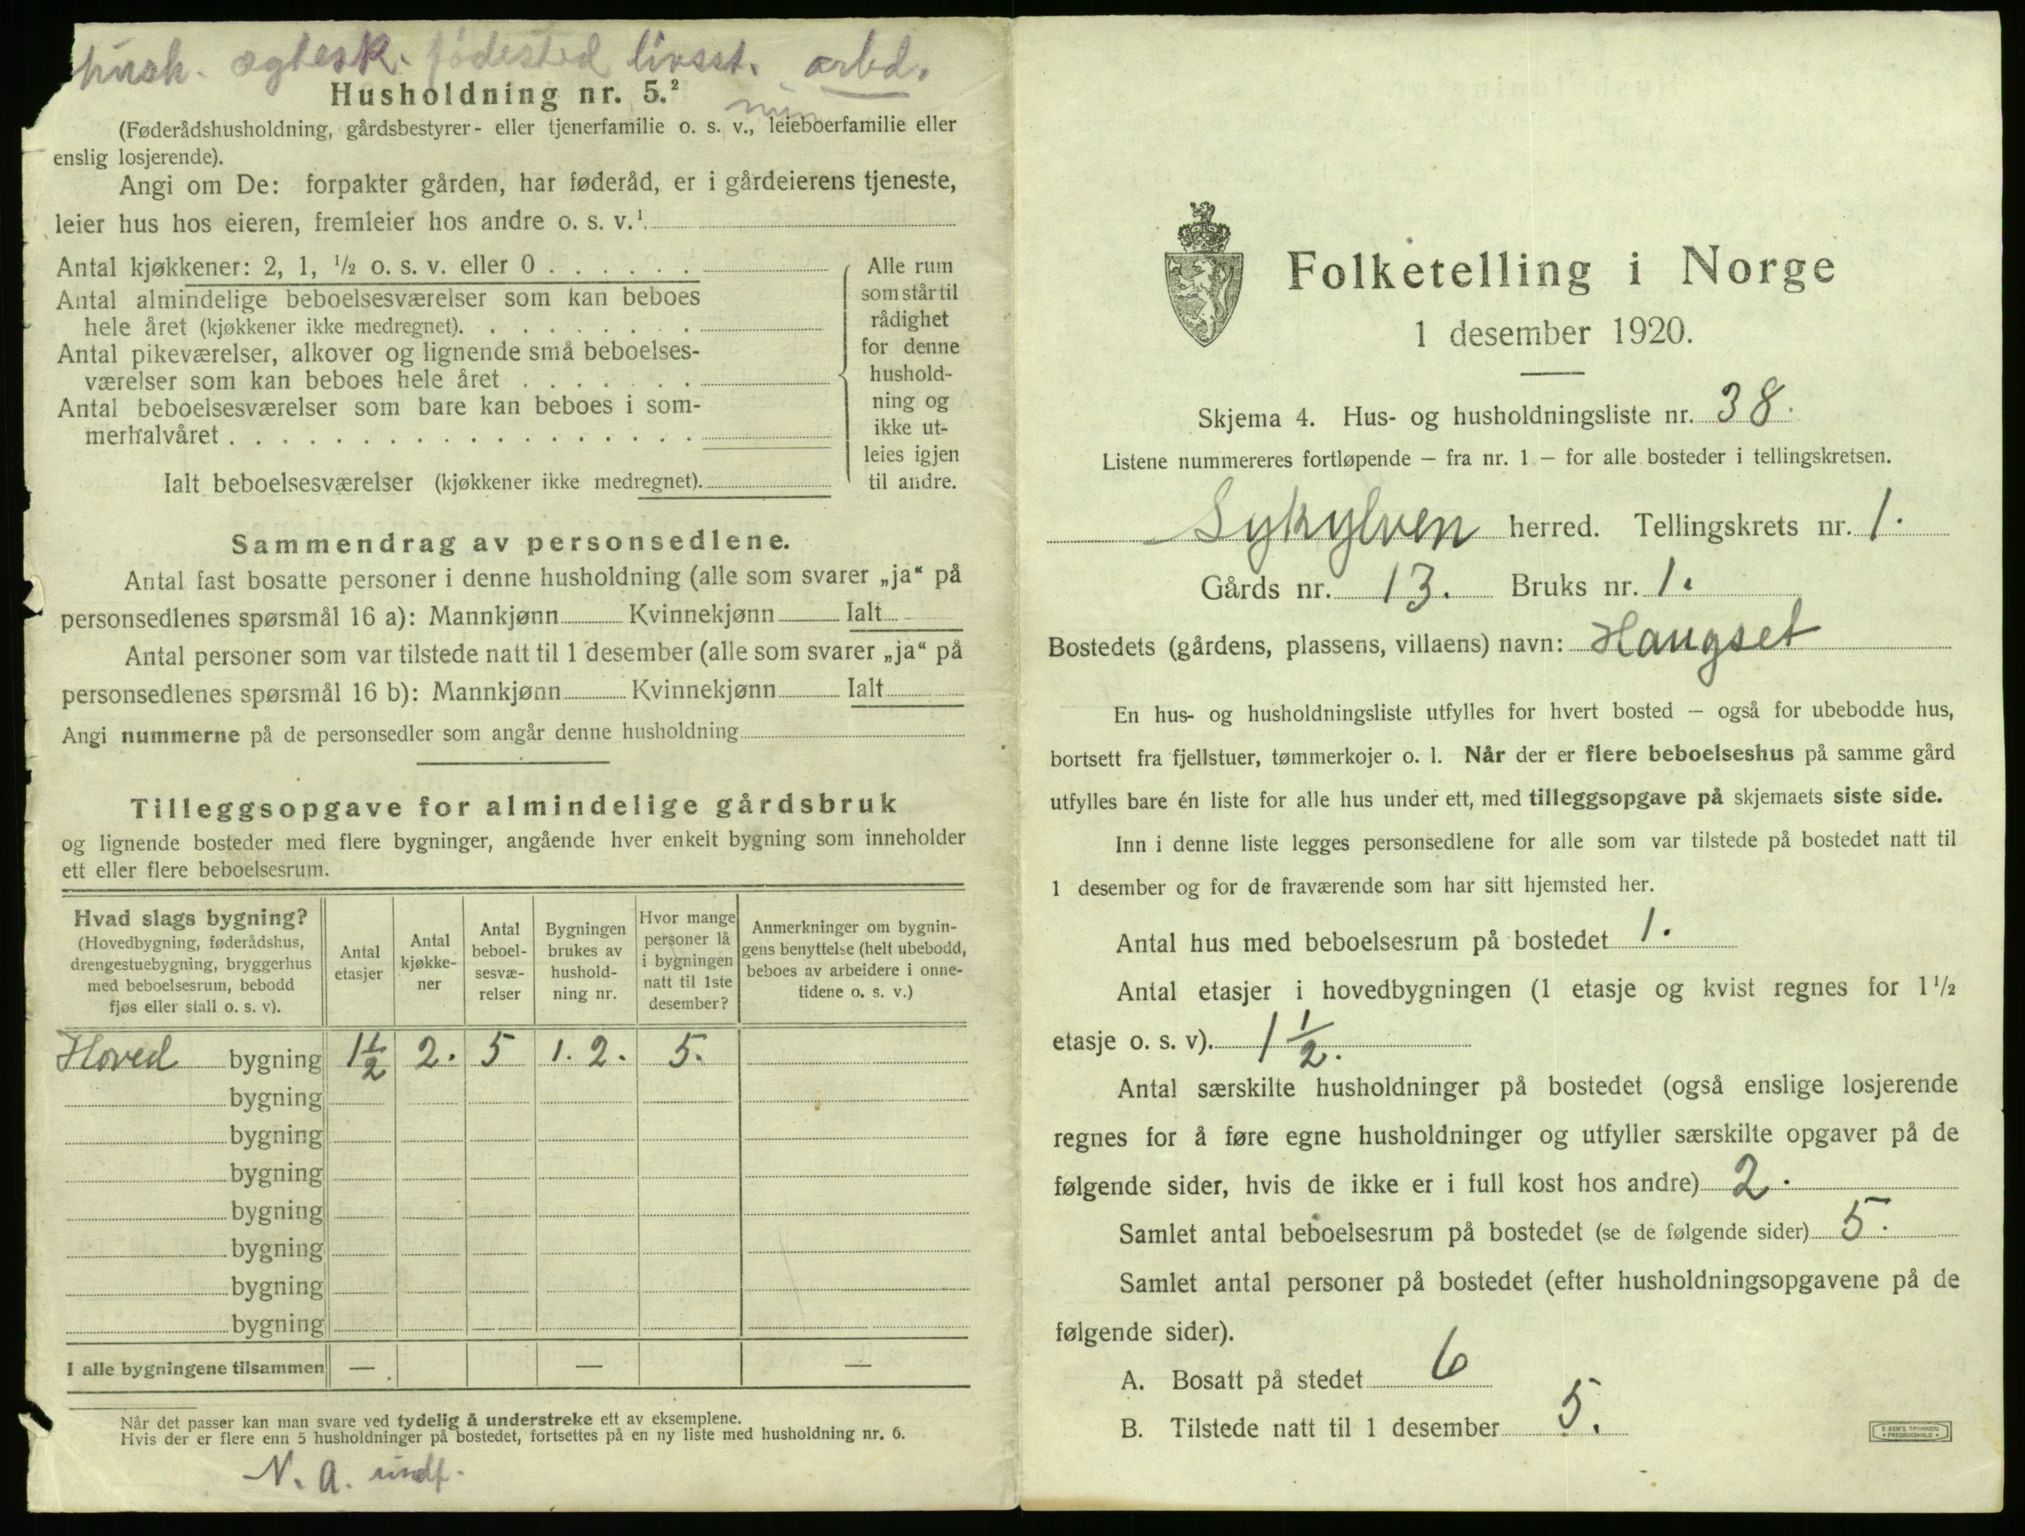 husk. ægtesk. fødested livsst. arbd.
Husholdning nr. 5.²
(Føderådshusholdning, gårdsbestyrer- eller tjenerfamilie o. s. v., leieboerfamilie eller
enslig losjerende).
Angi om De: forpakter gården, har føderåd, er i gårdeierens tjeneste,
leier hus hos eieren, fremleier hos andre o. s. v.¹
Antal kjøkkener: 2, 1, ½ o. s. v. eller 0 . . . . . .
Antal almindelige beboelsesværelser som kan beboes
hele året (kjøkkener ikke medregnet). . . . . . . . .
Antal pikeværelser, alkover og lignende små beboelses-
værelser som kan beboes hele året . . . . . . .
Antal beboelsesværelser som bare kan beboes i som-
merhalvåret . . . . . . . . . . . . . . . . . .
Ialt beboelsesværelser (kjøkkener ikke medregnet).
Alle rum
som står til
rådighet
for denne
hushold-
ning og
ikke ut-
leies igjen
til andre.
Sammendrag av personsedlene.
Antal fast bosatte personer i denne husholdning (alle som svarer „ja“ på
personsedlenes spørsmål 16 a): Mannkjønn Kvinnekjønn Ialt
Antal personer som var tilstede natt til 1 desember (alle som svarer „ja“ på
personsedlenes spørsmål 16 b): Mannkjønn Kvinnekjønn Ialt
Angi nummerne på de personsedler som angår denne husholdning
Tilleggsopgave for almindelige gårdsbruk
og lignende bosteder med flere bygninger, angående hver enkelt bygning som inneholder
ett eller flere beboelsesrum.
Hvad slags bygning?
(Hovedbygning, føderådshus,
drengestuebygning, bryggerhus
med beboelsesrum, bebodd
fjøs eller stall o. s. v).
Antal
etasjer
Antal
kjøkke-
ner
Antal
beboel-
sesvæ-
relser
Bygningen
brukes av
hushold-
ning nr.
Hvor mange
personer lå
i bygningen
natt til 1ste
desember?
Anmerkninger om bygnin-
gens benyttelse (helt ubebodd,
beboes av arbeidere i onne-
tidene o. s. v.)
Hoved bygning 1½ 2. 5 1. 2. 5.
bygning
bygning
bygning
bygning
bygning
bygning
bygning
I alle bygningene tilsammen — — —
Når det passer kan man svare ved tydelig å understreke ett av eksemplene.
Hvis der er flere enn 5 husholdninger på bostedet, fortsettes på en ny liste med husholdning nr. 6.
N. A.
Folketelling i Norge
1 desember 1920.
Skjema 4. Hus- og husholdningsliste nr. 38.
Listene nummereres fortløpende — fra nr. 1 — for alle bosteder i tellingskretsen.
Sykylven herred. Tellingskrets nr. 1.
Gårds nr. 13. Bruks nr. 1.
Bostedets (gårdens, plassens, villaens) navn: Haugset
En hus- og husholdningsliste utfylles for hvert bosted — også for ubebodde hus,
bortsett fra fjellstuer, tømmerkojer o. l. Når der er flere beboelseshus på samme gård
utfylles bare én liste for alle hus under ett, med tilleggsopgave på skjemaets siste side.
Inn i denne liste legges personsedlene for alle som var tilstede på bostedet natt til
1 desember og for de fraværende som har sitt hjemsted her.
Antal hus med beboelsesrum på bostedet 1.
Antal etasjer i hovedbygningen (1 etasje og kvist regnes for 1½
etasje o. s. v). 1½.
Antal særskilte husholdninger på bostedet (også enslige losjerende
regnes for å føre egne husholdninger og utfyller særskilte opgaver på de
følgende sider, hvis de ikke er i full kost hos andre) 2.
Samlet antal beboelsesrum på bostedet (se de følgende sider) 5.
Samlet antal personer på bostedet (efter husholdningsopgavene på de
følgende sider).
A. Bosatt på stedet 6
B. Tilstede natt til 1 desember 5.